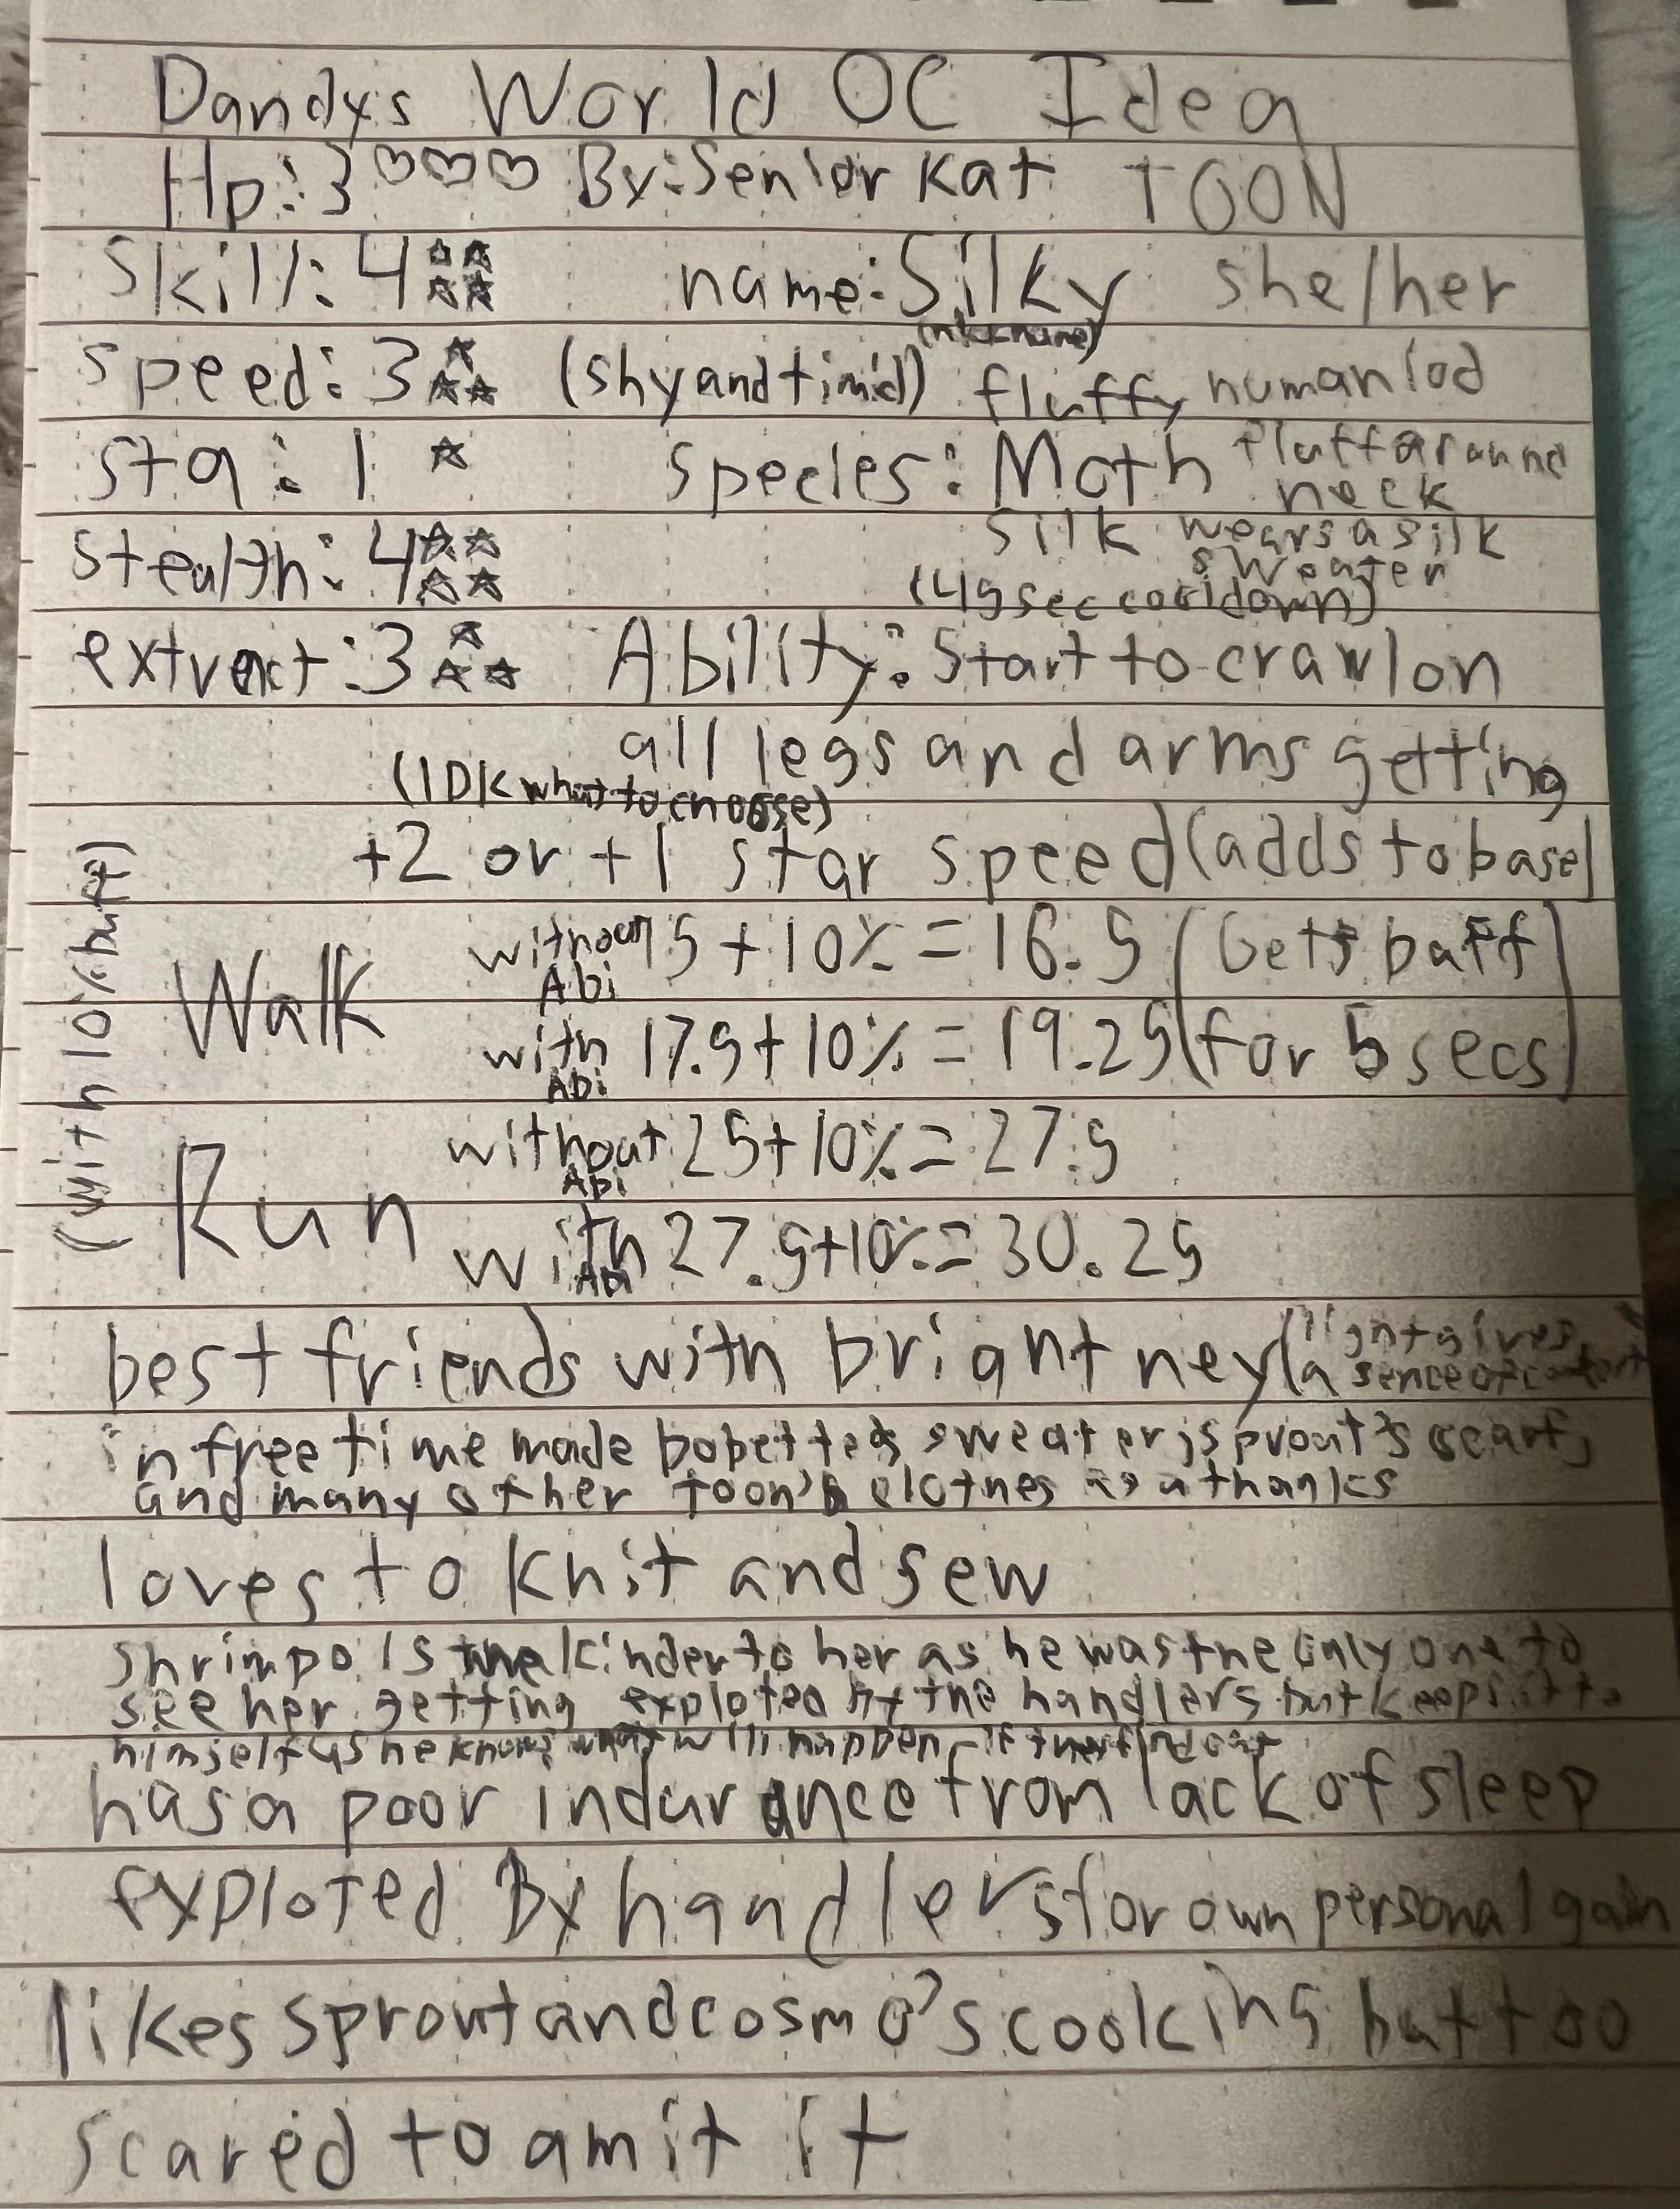 Dandys World OC Idea
Hp:3 ♡♡♡ By:Senior Kat TOON
Skill: 4 ☆☆☆☆ name: Silky she/her
(nickname)
speed: 3 ☆☆☆ (shy and timid) fluffy humaniod
sta: 1 ☆ species: Moth fluff around
neck
Silk wears a silk
sweater
stealth: 4 ☆☆☆☆
(45 sec cooldown)
extract: 3 ☆☆☆ Ability: Start to crawl on
all legs and arms getting
(IDK what to choose)
+2 or +1 star speed (adds to base)
(with 10% buff)
Walk
without Abi 15 + 10% = 16.5 (Gets buff
with Abi 17.5 + 10% = 19.25 for 5 secs)
Run
without Abi 25 + 10% = 27.5
with Abi 27.5 + 10% = 30.25
best friends with brightney (light gives
a sence of comfort
in free time made bobette's sweater, sprout's scarf,
and many other toon's clothes as a thanks
loves to knit and sew
shrimpo is kinder to her as he was the only one to
see her getting exploted by the handlers but keeps it to
himself as he knows what will happen if they find out
has a poor indurance from lack of sleep
exploted By handlers for own personal gain
likes sprout and cosmo's cooking but too
scared to amit it